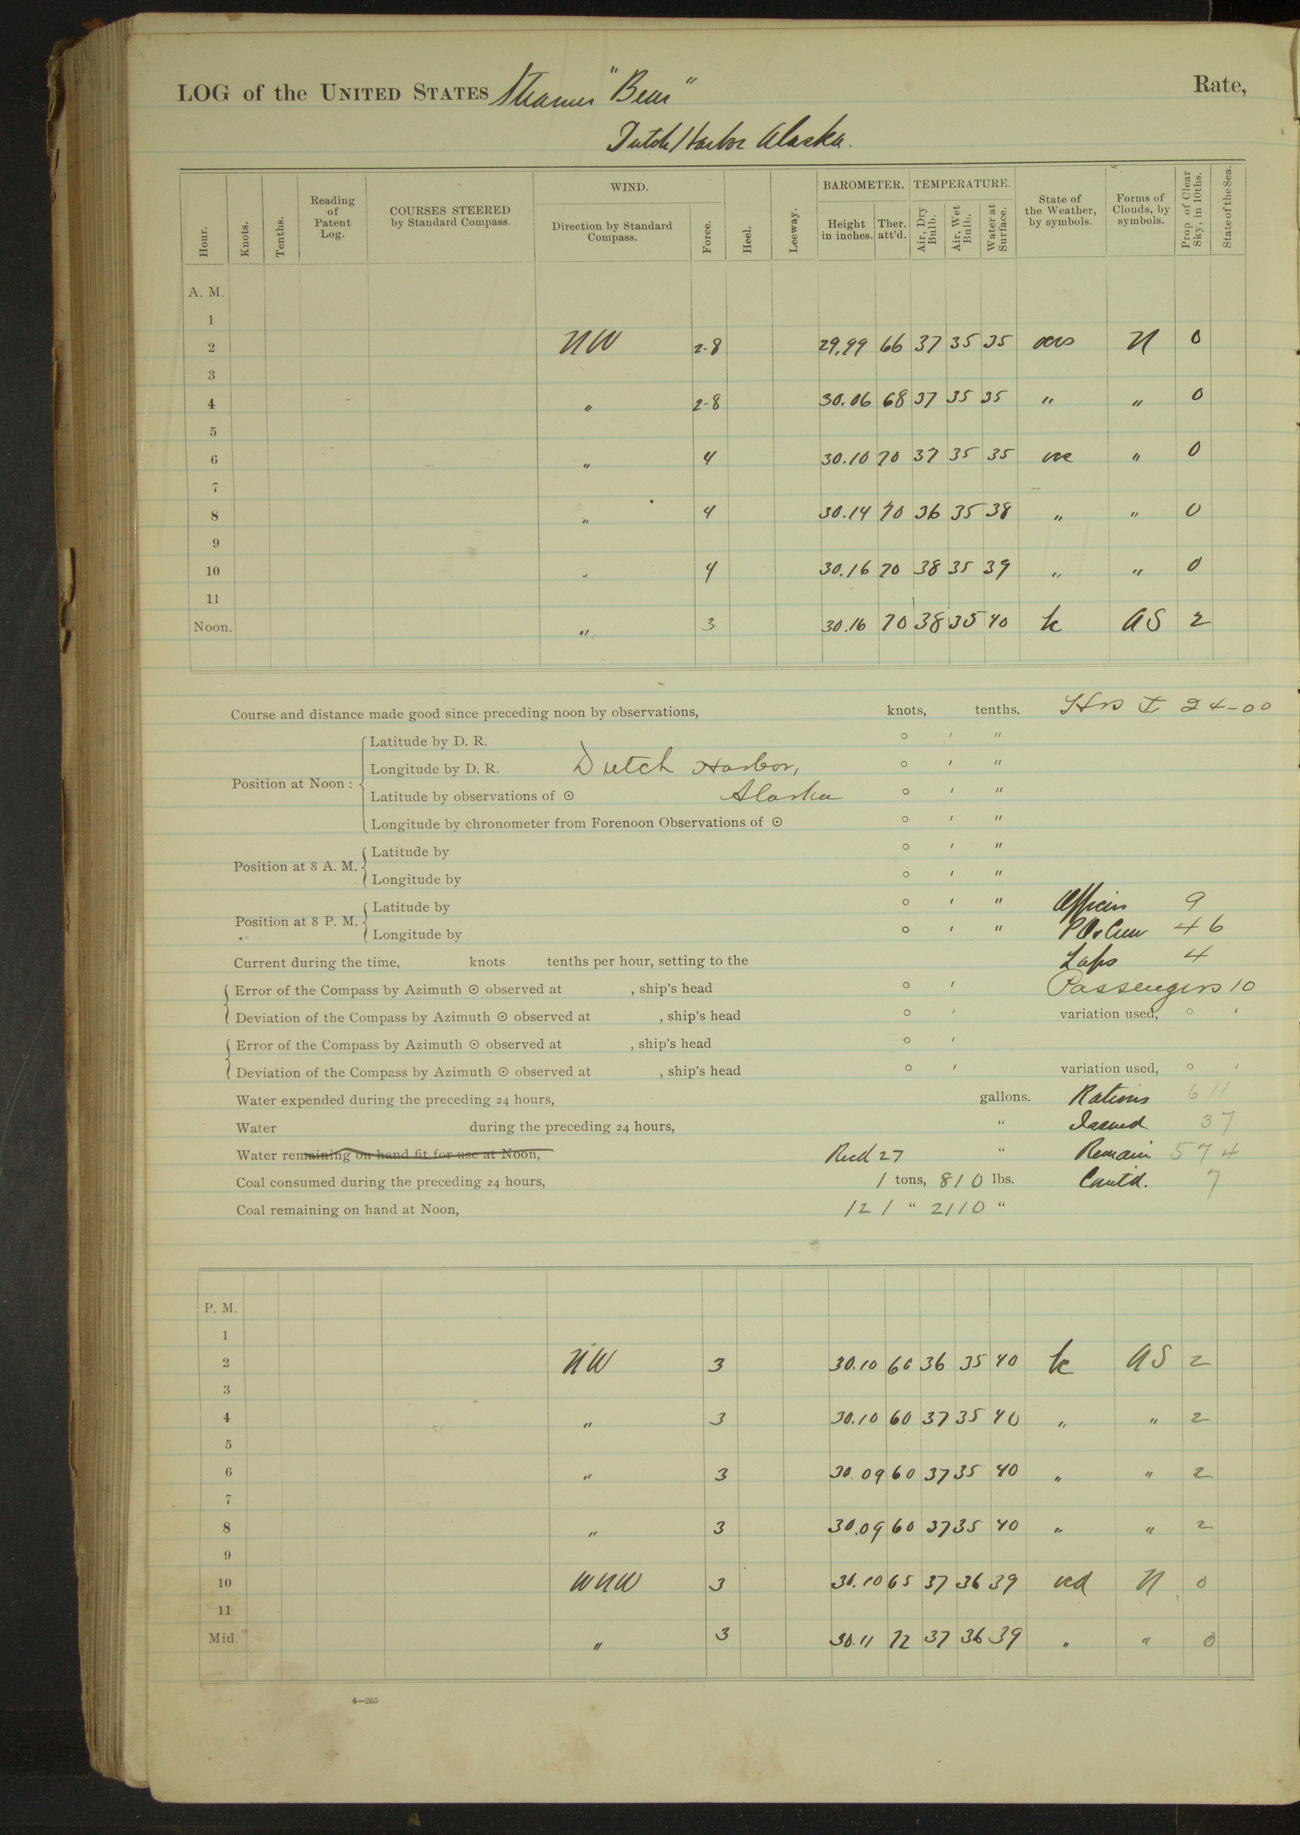 LOG of the UNITED STATES Steamer "Bear" Rate,
Dutch Harbor Alaska.
Hour. Knots. Tenths. Reading of Patent Log. COURSES STEERED by Standard Compass. WIND. Direction by Standard Compass. Force. Heel. Leeway. BAROMETER. Height in inches. Ther. att'd. TEMPERATURE. Air, Dry Bulb. Air, Wet Bulb. Water at Surface. State of the Weather, by symbols. Forms of Clouds, by symbols. Prop. of Clear Sky, in 10ths. State of the Sea.
A. M.
1
2 NW 2-8 29.99 66 37 35 35 N 0
3
4 " 2-8 30.06 68 37 35 35 " " 0
5
6 " 4 30.10 70 37 35 35 " 0
7
8 " 4 30.14 70 36 35 38 " " 0
9
10 " 4 30.16 70 38 35 39 " " 0
11
Noon. " 3 30.16 70 38 35 40 bc AS 2
Course and distance made good since preceding noon by observations, knots, tenths. 24-00
Position at Noon:
Latitude by D. R. ° ′ ″
Longitude by D. R. Dutch Harbor, ° ′ ″
Latitude by observations of ☉ Alaska ° ′ ″
Longitude by chronometer from Forenoon Observations of ☉ ° ′ ″
Position at 8 A. M. Latitude by ° ′ ″
Longitude by ° ′ ″
Position at 8 P. M. Latitude by ° ′ ″ Officers 9
Longitude by ° ′ ″ POs Crew 46
Current during the time, knots tenths per hour, setting to the 4
Error of the Compass by Azimuth ☉ observed at , ship's head ° ′ Passengers 10
Deviation of the Compass by Azimuth ☉ observed at , ship's head ° ′ variation used, ° ′
Error of the Compass by Azimuth ☉ observed at , ship's head ° ′
Deviation of the Compass by Azimuth ☉ observed at , ship's head ° ′ variation used, ° ′
Water expended during the preceding 24 hours, gallons. Rations 611
Water during the preceding 24 hours, " Issued 37
Water remaining on hand fit for use at Noon, Recd 27 " Remain 574
Coal consumed during the preceding 24 hours, 1 tons, 810 lbs. 7
Coal remaining on hand at Noon, 121 " 2110 "
P. M.
1
2 NW 3 30.10 60 36 35 40 bc AS 2
3
4 " 3 30.10 60 37 35 40 " " 2
5
6 " 3 30.09 60 37 35 40 " " 2
7
8 " 3 30.09 60 37 35 40 " " 2
9
10 WNW 3 30.10 65 37 36 39 ocd N 0
11
Mid. " 3 30.11 72 37 36 39 " " 0
4—265